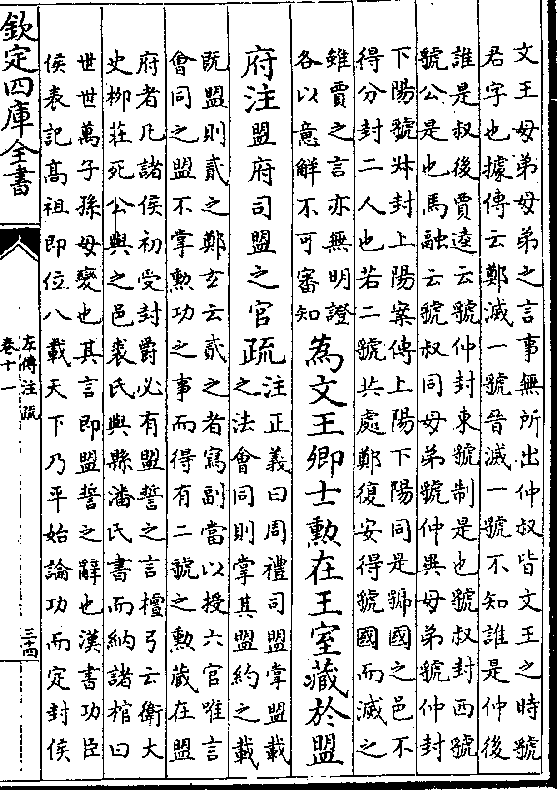 文王母弟母弟之言事無所出仲叔皆文王之時虢
君字也據傳云鄭滅一虢晉滅一虢不知誰是仲後
誰是叔後賈逵云虢仲封東虢制是也虢叔封西虢
虢公是也馬融云虢叔同母弟虢仲異母弟虢仲封
下陽虢叔封上陽案傳上陽下陽同是虢國之邑不
得分封二人也若二虢共處鄭復安得虢國而滅之
雖賈之言亦無明證
各以意解不可審知
為文王卿士勲在王室藏於盟
府注盟府司盟之官疏
注正義曰周禮司盟掌盟載
之法會同則掌其盟約之載
既盟則貳之鄭玄云貳之者寫副當以授六官唯言
會同之盟不掌勲功之事而得有二虢之勲蔵在盟
府者凡諸侯初受封爵必有盟誓之言檀弓云衛大
史柳莊死公與之邑裘氏與縣潘氏書而納諸棺曰
世世萬子孫毋變也其言即盟誓之辭也漢書功臣
侯表記髙祖即位八載天下乃平始論功而定封侯
欽定四庫全書
左傳注疏
卷十一
三十四